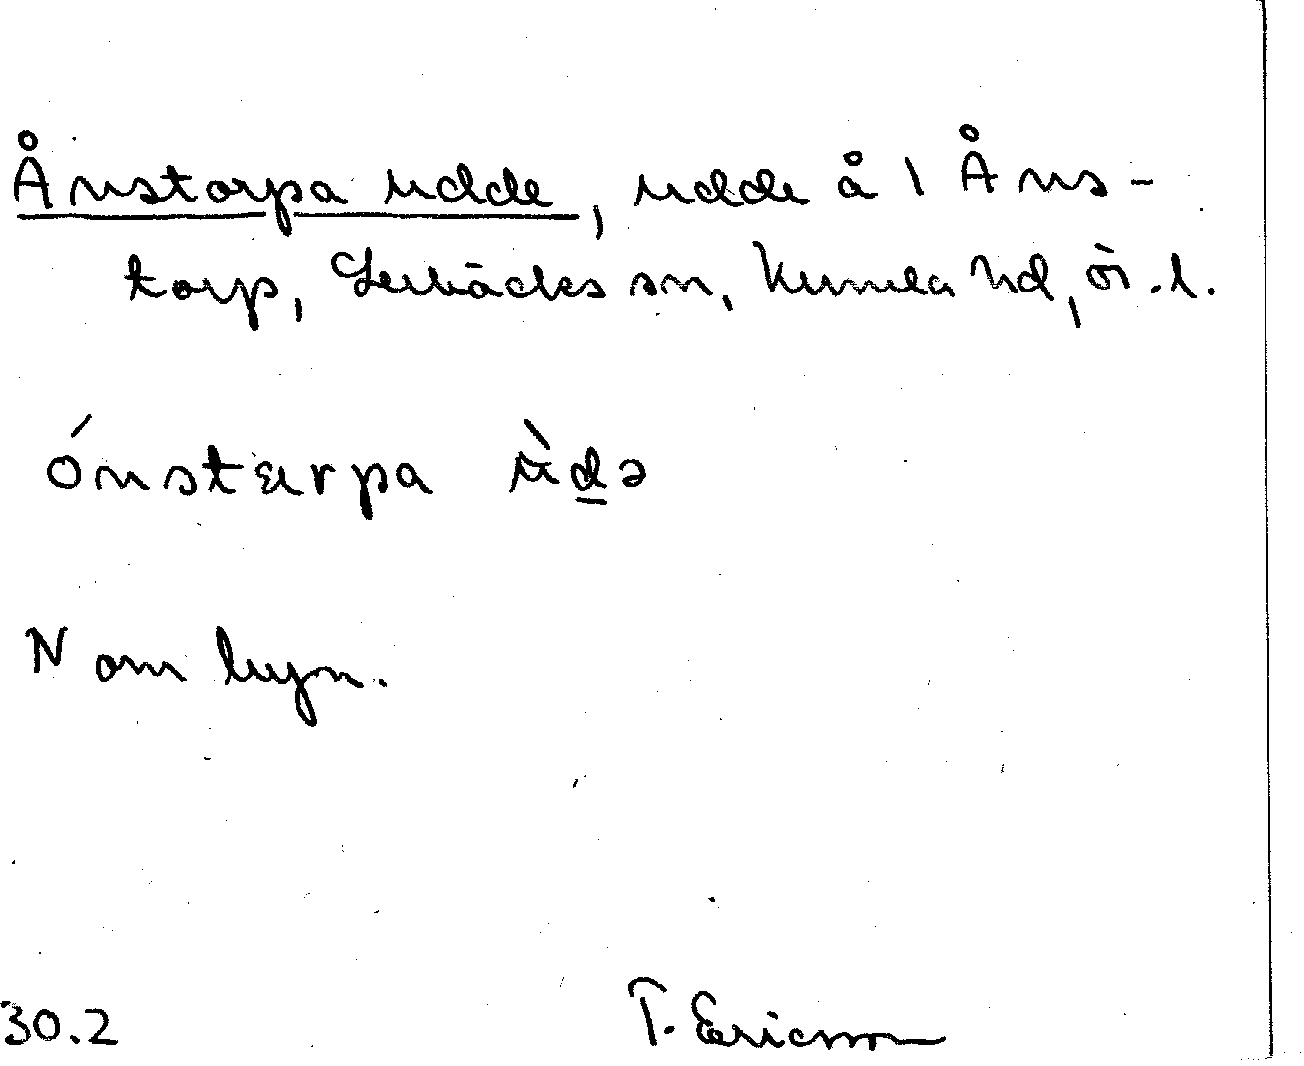 Ånstorpa udde, udde å 1 Åns-
torp, Lerbäcks sn, Kumla hd, ör. l.
ónstærpa ùdə
N om byn.
30.2 T. Ericsson